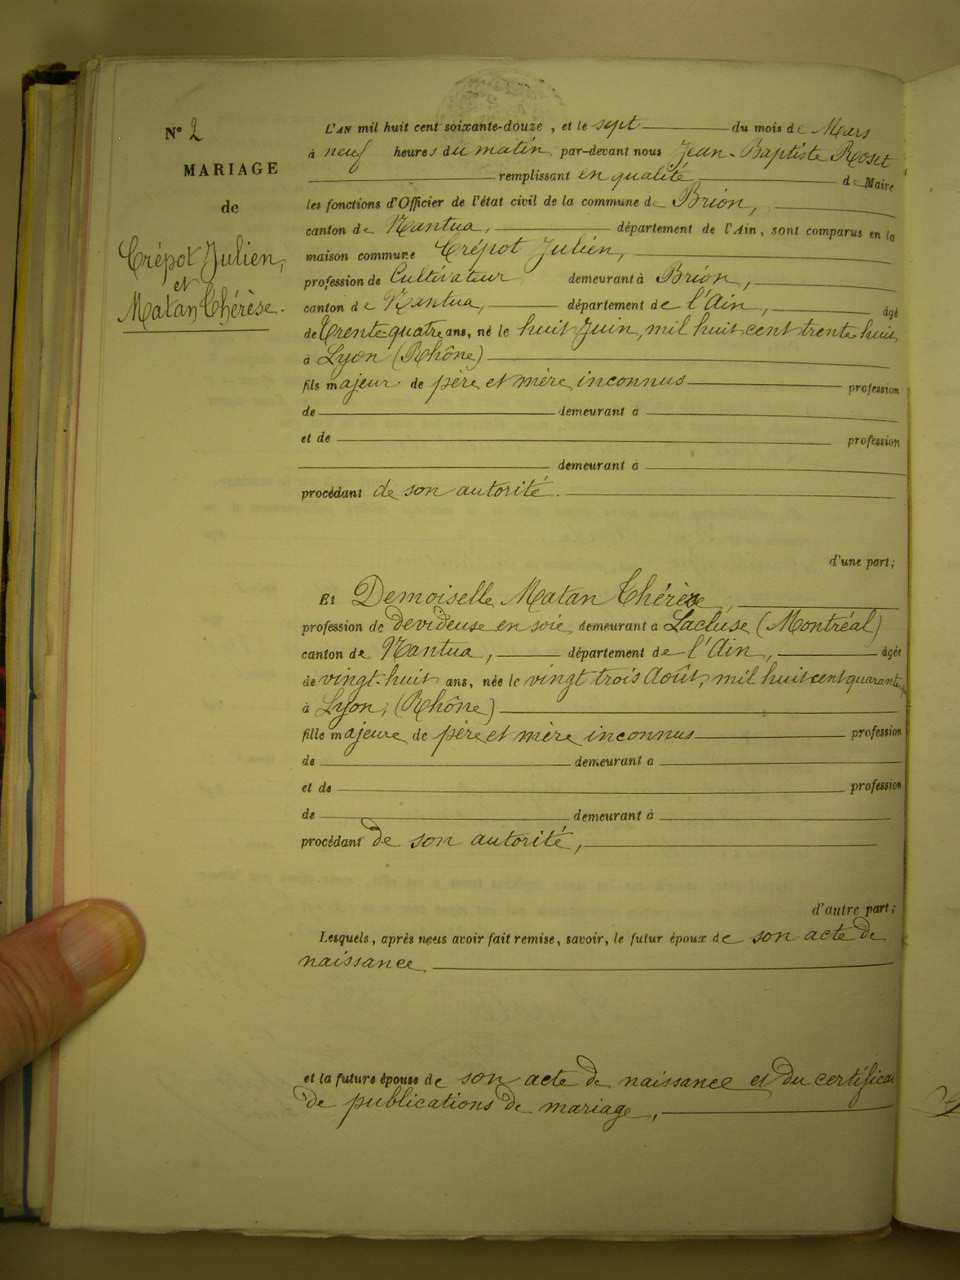 N° 2
MARIAGE
de
Crépot Julien,
et
Matan Thérèse.
L'AN mil huit cent soixante-douze, et le sept du mois de Mars
à neuf heures du matin, par-devant nous Jean-Baptiste Roset
remplissant en qualité de Maire
les fonctions d'Officier de l'état civil de la commune de Brion,
canton de Nantua, département de l'Ain, sont comparus en la
maison commune Crépot Julien,
profession de Cultivateur demeurant à Brion,
canton de Nantua, département de l'Ain, âgé
de Trente quatre ans, né le huit Juin, mil huit cent trente huit,
à Lyon (Rhône)
fils majeur de père et mère inconnus profession
de demeurant à
et de profession
demeurant à
procédant de son autorité.
d'une part;
Et Demoiselle Matan Thérèse,
profession de devideuse en soie, demeurant à Lacluse (Montréal)
canton de Nantua, département de l'Ain, âgée
de vingt-huit ans, née le vingt trois Août, mil huit cent quarante,
à Lyon, (Rhône)
fille majeure de père et mère inconnus profession
de demeurant à
et de profession
de demeurant à
procédant de son autorité,
d'autre part;
Lesquels, après nous avoir fait remise, savoir, le futur époux de son acte de
naissance,
et la future épouse de son acte de naissance et du certificat
de publications de mariage,